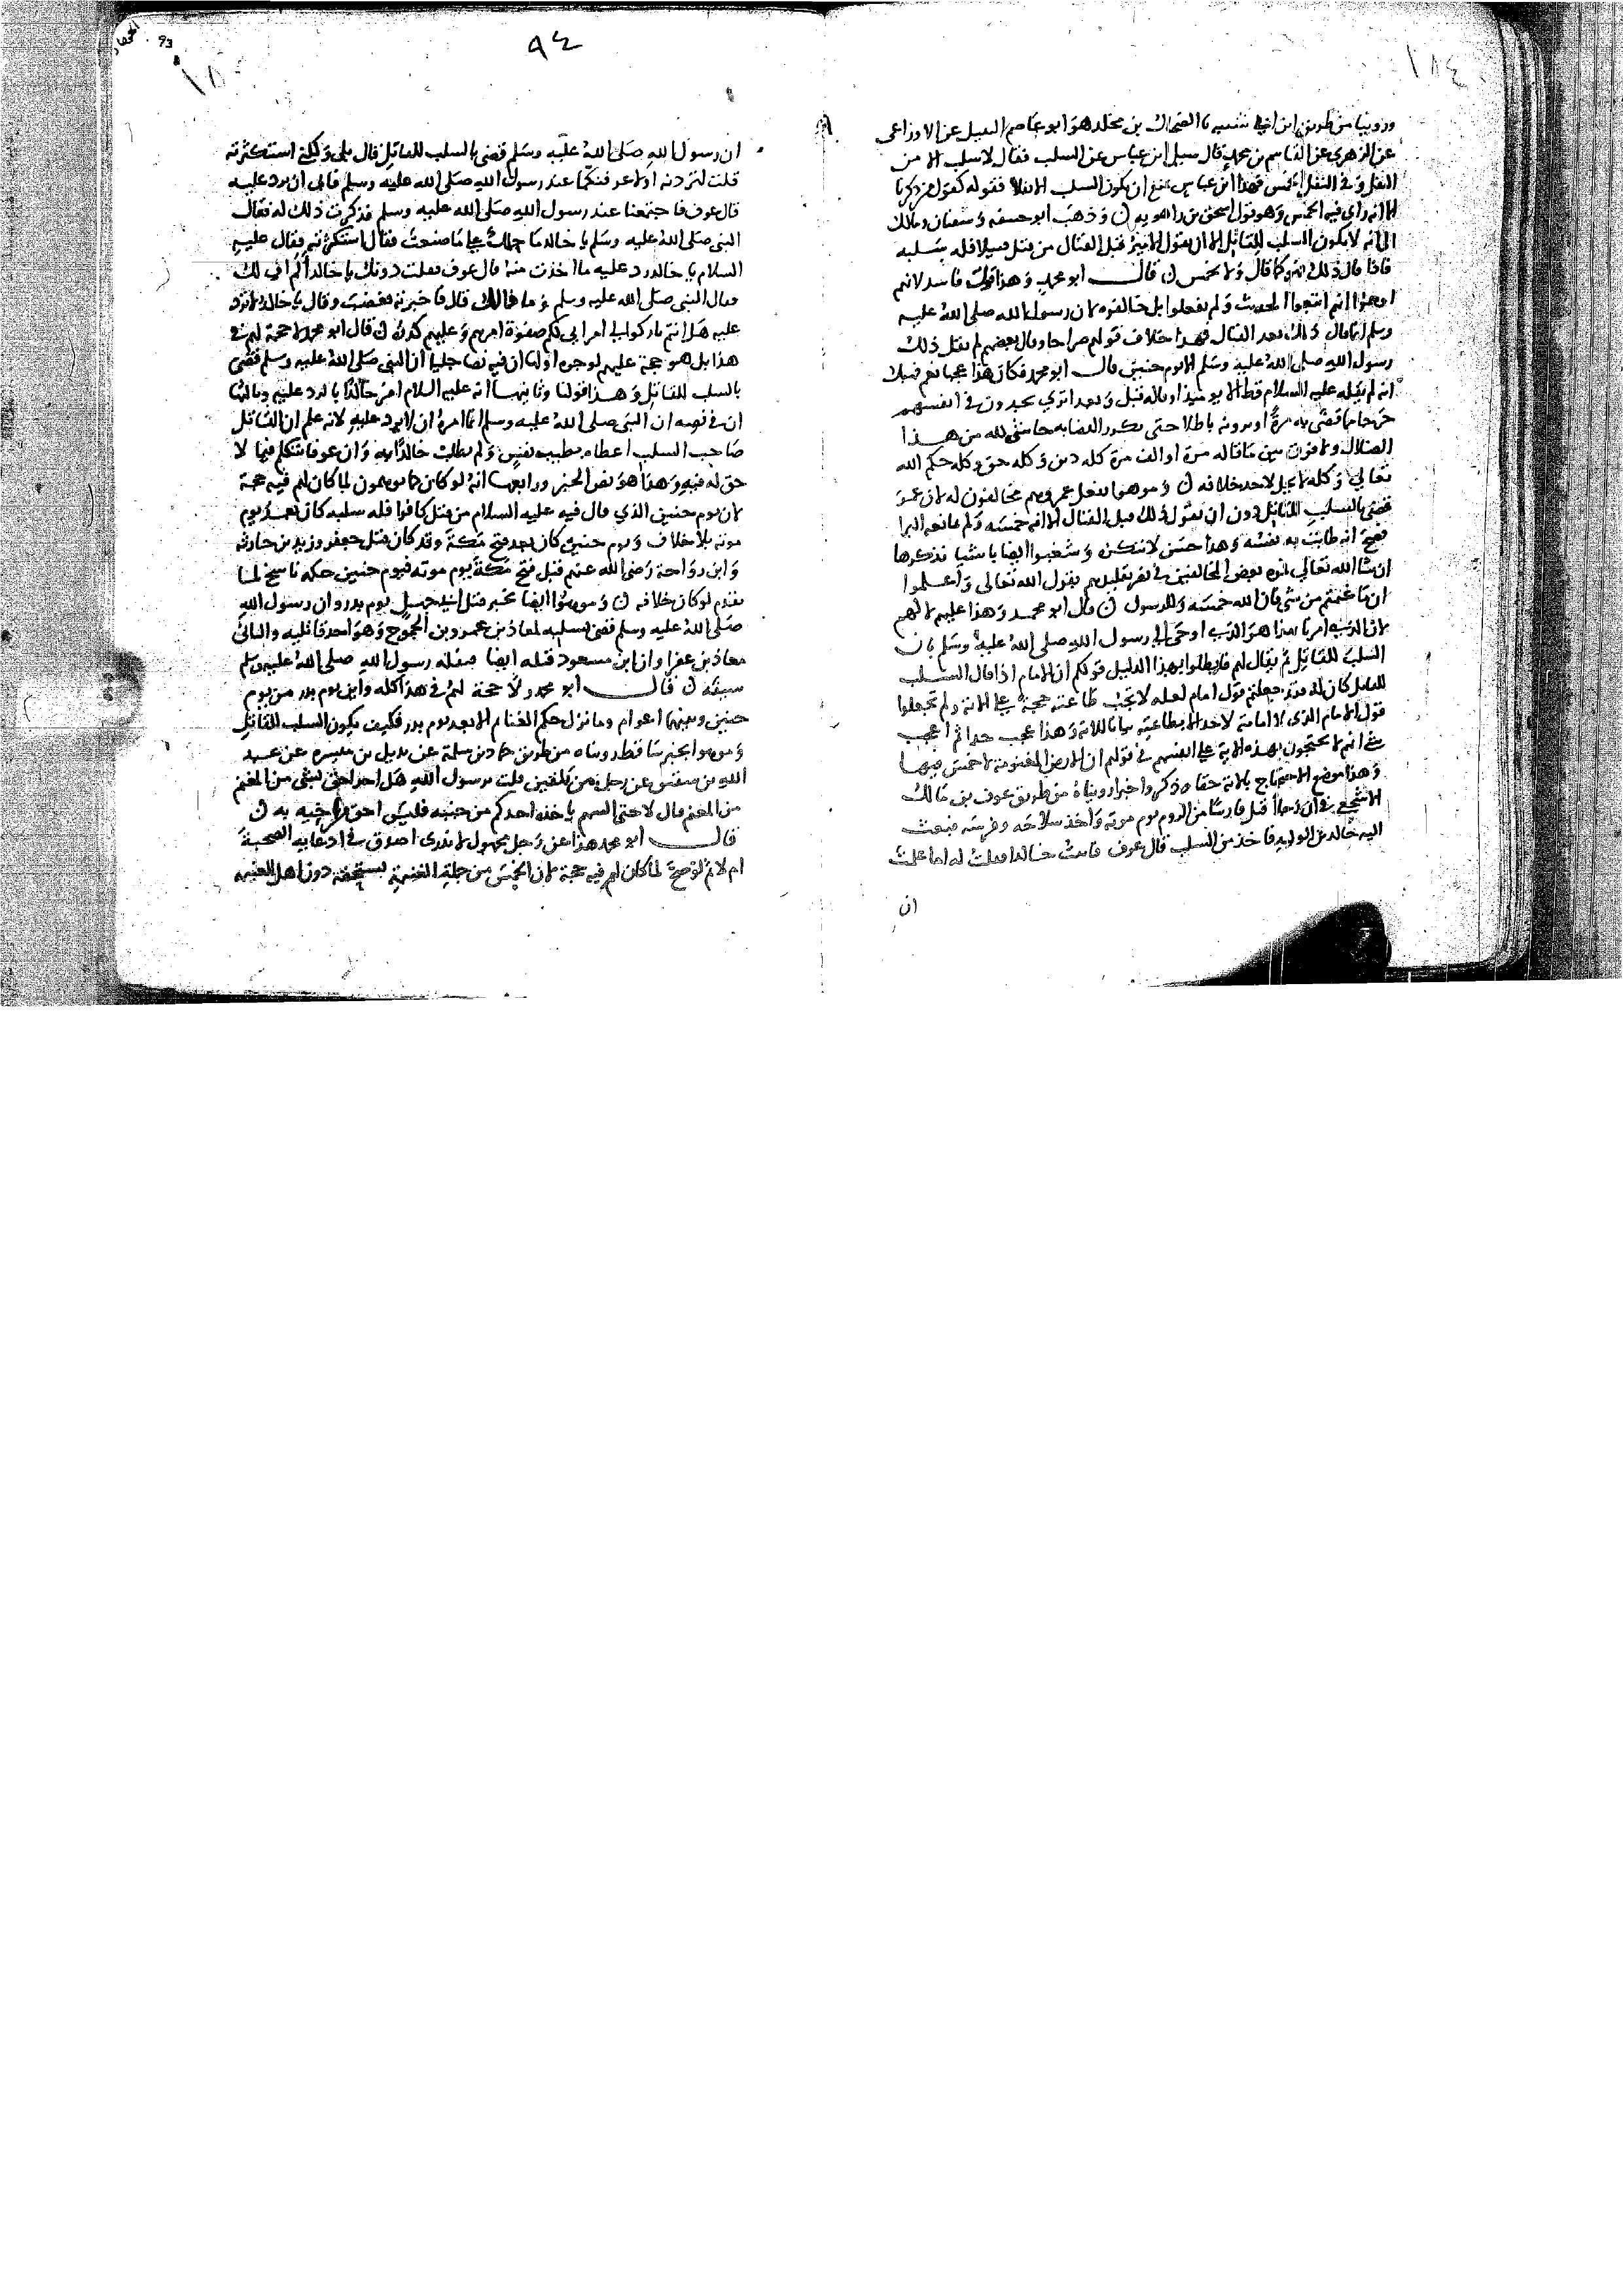 وروينا من طريق ابن ابي شيبة نا الضحاك بن مخلد هو ابو عاصم النبيل عن الاوزاعي
عن الزهري عن القاسم بن محمد قال سيل ابن عباس عن السلب فقال لا سلب الا من
النفل وفي النفل الخمس فهذا ابن عباس يمنع ان يكون السلب الا نفلا فقوله كقول من ذكرنا
الا انه راي فيه الخمس وهو قول اسحق بن راهويه وذهب ابو حنيفه وسفيان ومالك
الى انه لا يكون السلب للقاتل الا ان يقول الامير قبل القتال من قتل قتيلا فله سلبه
فاذا قال ذلك فهو كما قال ولا يخمس قال ابو محمد وهذا قول فاسد لانهم
اوهموا انهم اتبعوا الحديث ولم يفعلوا بل خالفوه لان رسول الله صلى الله عليه
وسلم انما قال ذلك بعد القتال فهذا خلاف قولهم صراحا وقال بعضهم لم يقل ذلك
رسول الله صلى الله عليه وسلم الا يوم حنين قال ابو محمد فكان هذا عجبا نعم فهبك
انه لم يقله عليه السلام قط الا يوميذ او قاله قبل وبعد اترى يجدون في انفسهم
حرجا مما قضى به مرة او يرونه باطلا حتى يكرر القضا به حاشى لله من هذا
الضلال ولا فرق بين ما قاله مرة او الف مرة كله دين وكله حق وكله حكم الله
تعالى وكله لا يحل لاحد خلافه وموهوا بفعل عمر وهم مخالفون له لان عمر
قضى بالسلب للقاتل دون ان يقول ذلك قبل القتال الا انه خمسه ولم يمانعه البرا
فصح انه طابت به نفسه وهذا حسن لا ننكره وشغبوا ايضا باشيا نذكرها
ان شا الله تعالى موه بعض المخالفين في نصر تقليدهم بقول الله تعالى واعلموا
ان ما غنمتم من شي فان لله خمسه وللرسول قال ابو محمد وهذا عليهم لا لهم
لان الذي امرنا بهذا هو الذي اوحى الى رسول الله صلى الله عليه وسلم بان
السلب للقاتل ثم يقال لهم فابطلوا بهذا الدليل قولكم ان الامام اذا قال السلب
للقاتل كان له فقد جعلتم قول امام لعله لا تجب طاعته حجة على الاية ولم تجعلوا
قول الامام الذي لا امامة لاحد الا بطاعته بيانا للاية وهذا عجب جدا ثم اعجب
شي انهم لا يحتجون بهذه الاية على انفسهم في قولهم ان الارض المغنومة لا خمس فيها
وهذا موضع الاحتجاج بالاية حقا وذكروا خبرا رويناه من طريق عوف بن مالك
الاشجعي في ان رجلا قتل فارسا من الروم يوم موته واخذ سلاحه وفرسه فبعث
اليه خالد بن الوليد فاخذ من السلب قال عوف فاتيت خالدا فقلت له اما علمت
ان
٩٤
93
ان رسول الله صلى الله عليه وسلم قضى بالسلب للقاتل قال بلى ولكني استكثرته
قلت لتردنه او لاعرفنكها عند رسول الله صلى الله عليه وسلم فابى ان يرد عليه
قال عوف فاجتمعنا عند رسول الله صلى الله عليه وسلم فذكرت ذلك له فقال
النبي صلى الله عليه وسلم يا خالد ما حملك على ما صنعت فقال استكثرته فقال عليه
السلام يا خالد رد عليه ما اخذت منه قال عوف فقلت دونك يا خالد الم اف لك
فقال النبي صلى الله عليه وسلم وما ذالك قال فاخبرته فغضب وقال يا خالد لا ترد
عليه هل انتم تاركوا لي امرايي لكم صفوة امرهم وعليهم كدره قال ابو محمد لا حجة لهم في
هذا بل هو حجة عليهم لوجوه اولها ان فيه نصا جليا ان النبي صلى الله عليه وسلم قضى
بالسلب للقاتل وهذا قولنا وثانيها انه عليه السلام امر خالدا بالرد عليه وثالثها
ان في نصه ان النبي صلى الله عليه وسلم انما امره ان لا يرد عليه لانه علم ان القاتل
صاحب السلب اعطاه بطيب نفس ولم يطلب خالدا به وان عوفا تكلم فيما لا
حق له فيه وهذا هو نص الخبر ورابعها انه لو كان كما يوهمون لما كان لهم فيه حجة
لان يوم حنين الذي قال فيه عليه السلام من قتل كافرا فله سلبه كان بعد يوم
موته بلا خلاف ويوم حنين كان بعد فتح مكة وقد كان قتل جعفر وزيد بن حارثه
وابن رواحة رضي الله عنهم قبل فتح مكة يوم موته فيوم حنين حكمه ناسخ لما
تقدم لو كان خلافه وموهوا ايضا بخبر قتل ابي جهل يوم بدر وان رسول الله
صلى الله عليه وسلم قضى بسلبه لمعاذ بن عمرو بن الجموح وهو احد قاتليه والثاني
معاذ بن عفرا وان ابن مسعود قتله ايضا فنفله رسول الله صلى الله عليه وسلم
سيفه قال ابو محمد ولا حجة لهم في هذا كله واين يوم بدر من يوم
حنين وبينهما اعوام وما نزل حكم الغنايم الا بعد يوم بدر فكيف يكون السلب للقاتل
وموهوا بخبر ساقط رويناه من طريق حماد بن سلمة عن بديل بن ميسره عن عبد
الله بن شقيق عن رجل من بلقين قلت يرسول الله هل احد احق بشي من المغنم
من المغنم قال لا حتى السهم ياخذه احدكم من جنبه فليس احق من اخيه به
قال ابو محمد هذا عن رجل مجهول لا ندرى اصدق في ادعايه الصحبة
ام لا ثم لو صح لما كان لهم فيه حجة لان الخمس من جملة الغنيمة يستحقه دون اهل الغنيمه